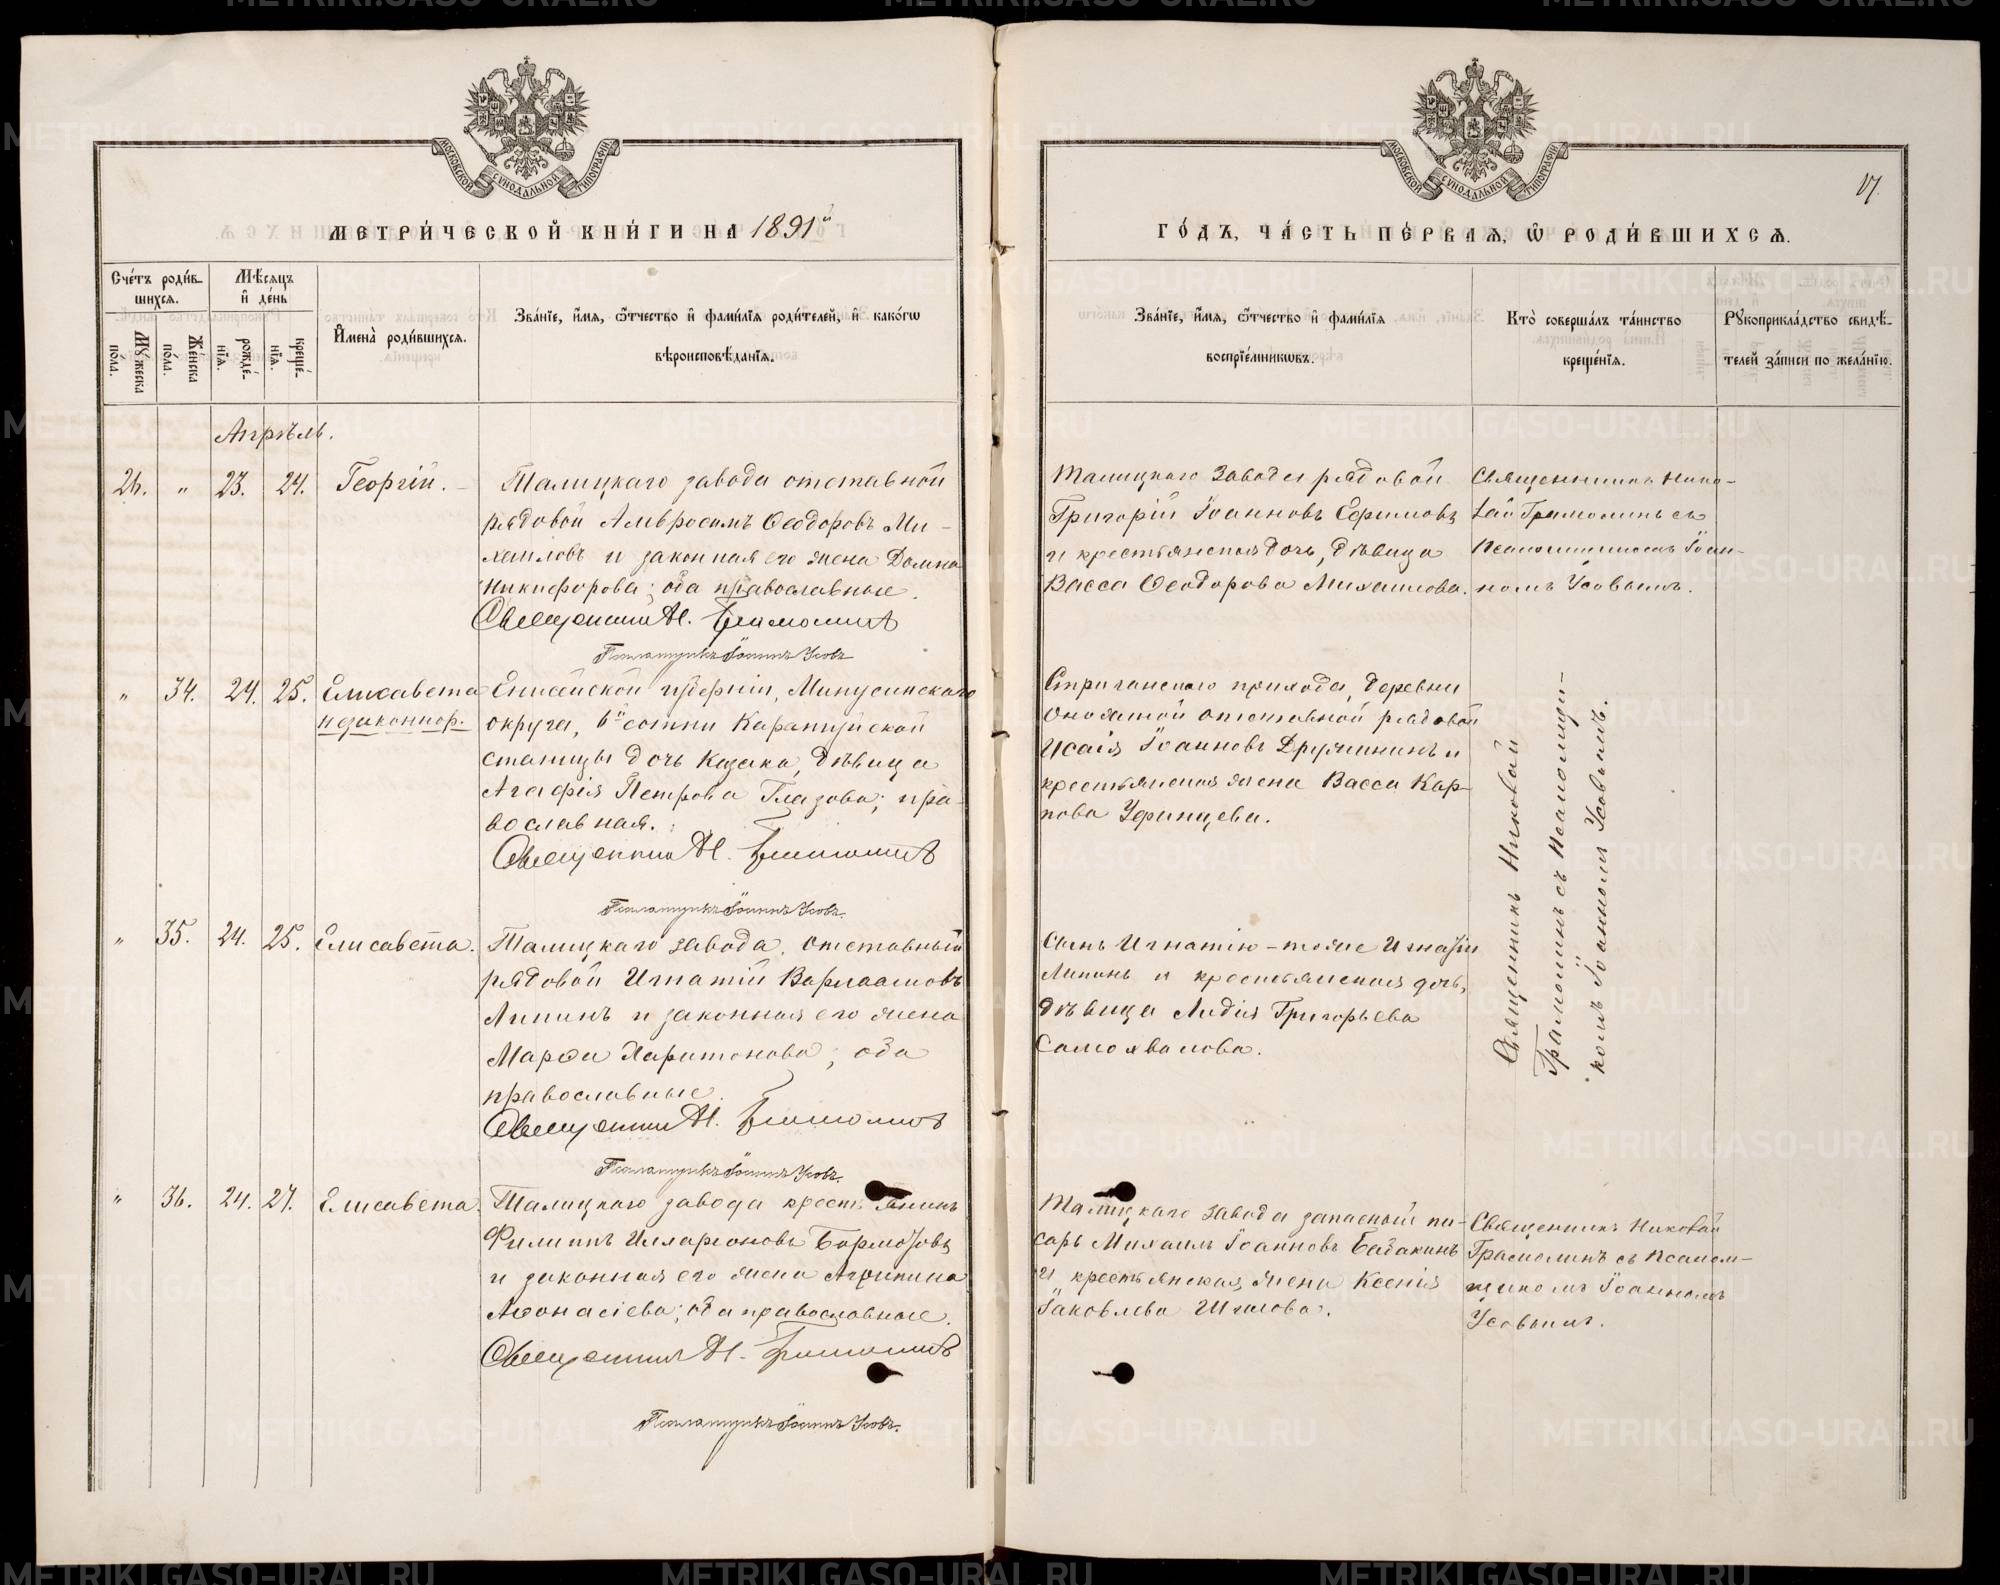 МОСКОВСКОЙ СѴНОДАЛЬНОЙ ТИПОГРАФІИ
МЕТРИ́ЧЕСКОЙ КНИ́ГИ НА 1891й
Сче́тъ роди́в-
шихсѧ.
Мѣ́сѧцъ
и҆ де́нь
Мꙋ́жеска
по́ла.
Же́нска
по́ла.
рожде́-
нїѧ.
креще́-
нїѧ.
И҆мена̀ роди́вшихсѧ.
Зва́нїе, и҆́мѧ, ѻ҆́тчество и҆ фами́лїѧ роди́телей, и҆ како́гѡ
вѣроисповѣ́данїѧ.
Апрѣль.
26. " 23. 24. Георгій.
Талицкаго завода отставной
рядовой Амвросимъ Ѳеодоровъ Ми-
хаиловъ и законная его жена Домна
Никифорова; оба православные.
Священникъ Н. Грамолинъ
Псаломщикъ Іоаннъ Усовъ
" 34. 24. 25. Елисавета
незаконнор.
Енисейской губерніи, Минусинскаго
округа, 6й сотни Каратузской
станицы дочь казака, дѣвица
Агафія Петрова Глазова; пра-
вославная.
Священникъ Н. Грамолинъ
Псаломщикъ Іоаннъ Усовъ.
" 35. 24. 25. Елисавета.
Талицкаго завода отставный
рядовой Игнатій Варлаамовъ
Липинъ и законная его жена
Марѳа Харитонова; оба
православные.
Священникъ Н. Грамолинъ
Псаломщикъ Іоаннъ Усовъ.
" 36. 24. 27. Елисавета.
Талицкаго завода крестьянинъ
Филиппъ Илларіоновъ Бармотовъ
и законная его жена Агрипина
Аѳонасіева; оба православные.
Священникъ Н. Грамолинъ
Псаломщикъ Іоаннъ Усовъ.
МОСКОВСКОЙ СѴНОДАЛЬНОЙ ТИПОГРАФІИ
17.
ГО́ДЪ, ЧА́СТЬ ПЕ́РВАѦ, Ѡ҆ РОДИ́ВШИХСѦ.
Зва́нїе, и҆́мѧ, ѻ҆́тчество и҆ фами́лїѧ
воспрїе́мникѡвъ.
Кто̀ соверша́лъ та́инство
креще́нїѧ.
Рꙋкоприкла́дство свидѣ́-
телей за́писи по жела́нїю.
Талицкаго завода рядовой
Григорій Іоанновъ Ефимовъ
и крестьянская дочь, дѣвица
Васса Ѳеодорова Михаилова.
Священникъ Нико-
лай Грамолинъ съ
Псаломщикомъ Іоан-
номъ Усовымъ.
Стриганскаго прихода, деревни
отставной рядовой
Исаія Іоанновъ Дружининъ и
крестьянская жена Васса Кар-
пова Уфинцева.
Священникъ Николай
Грамолинъ съ Псаломщи-
комъ Іоанномъ Усовымъ.
Сынъ Игнатію - тоже Игнатій
Липинъ и крестьянская дочь,
дѣвица Лидія Григорьева
Самохвалова.
Талицкаго завода запасный пи-
сарь Михаилъ Іоанновъ Бабакинъ
и крестьянская жена Ксенія
Іаковлева Шилова.
Священникъ Николай
Грамолинъ съ Псалом-
щикомъ Іоанномъ
Усовымъ.
METRIKI.GASO-URAL.RU